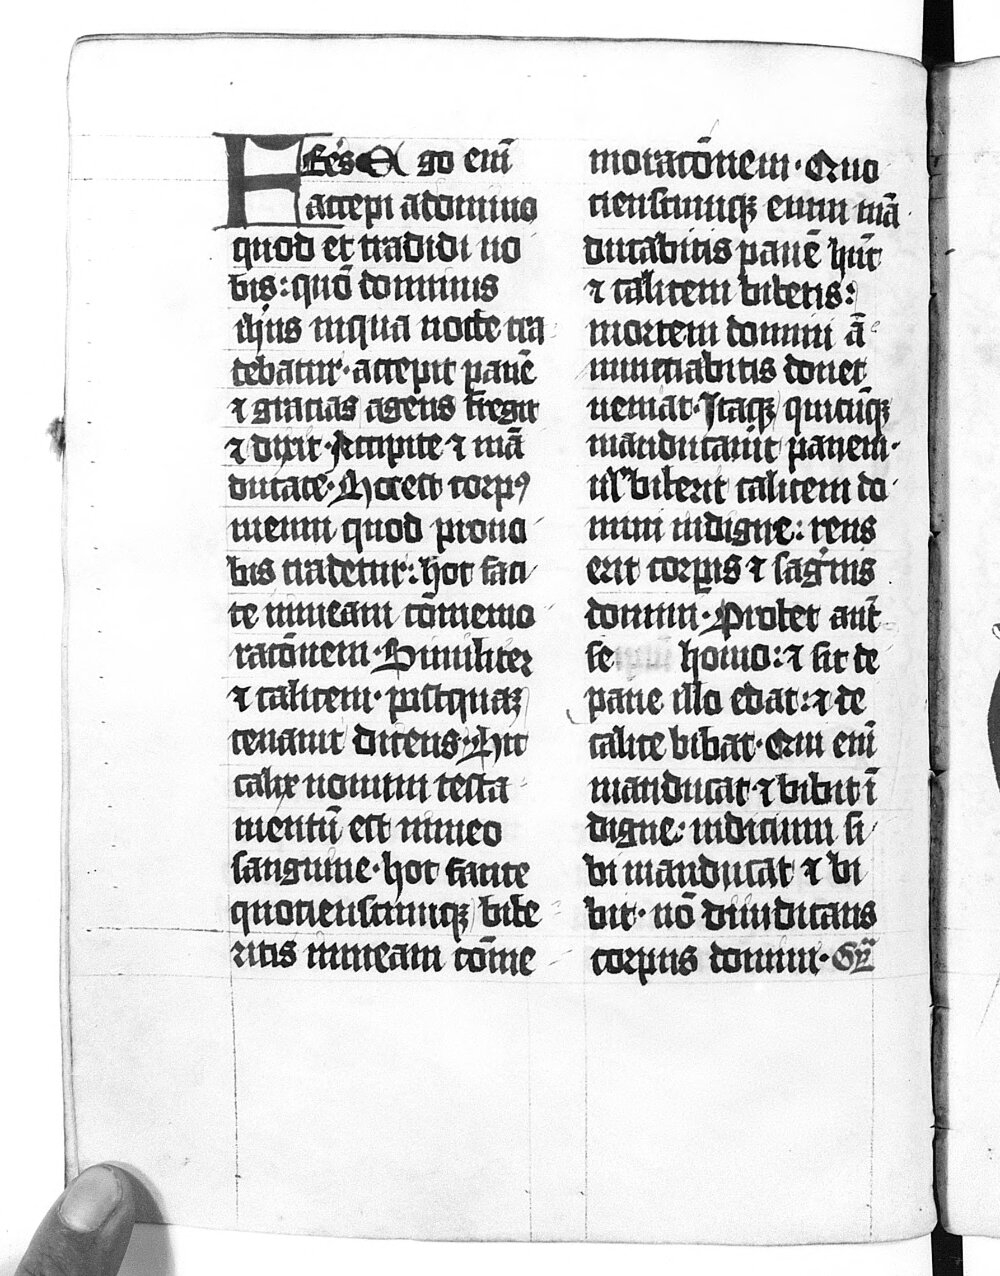 Fr̄es Ego eni᷑
accepi adomino
quod et tradidi uo
bis: quō dominus
ihūs inqua nocte tra
debatur· accepit panē
⁊ gracias agens fregit
⁊ dixit· Accipite ⁊ mā
ducate· Hocest corpꝰ
meum quod prouo
bis tradetur: hoc faci
te inmeam cōmemo
racōnem· Similiter
⁊ calicem· postquaꝫ
cenauit dicens· Hic
calix nouum testa
mentū est inmeo
sanguine· hoc facite
quocienscumqꝫ bibe
ritis inmeam cōme
moracōnem· Quo
cienscumqꝫ enim mā
ducabitis panē hūc
⁊ calicem bibetis:
mortem domini ā
nunciabitis donec
ueniat· Itaqꝫ quicūqꝫ
manducauit panem·
ul̓ biberit calicem do
mini indigne: reus
erit corporis ⁊ sāg̓nis
domini· Probet aut̄
se homo: ⁊ sic de
pane illo edat: ⁊ de
calice bibat· Qui eni᷑
manducat· ⁊ bibit ī
digne: iudicium si
bi manducat ⁊ bi
bit· nō diiudicans
corpus domini· Gr̄